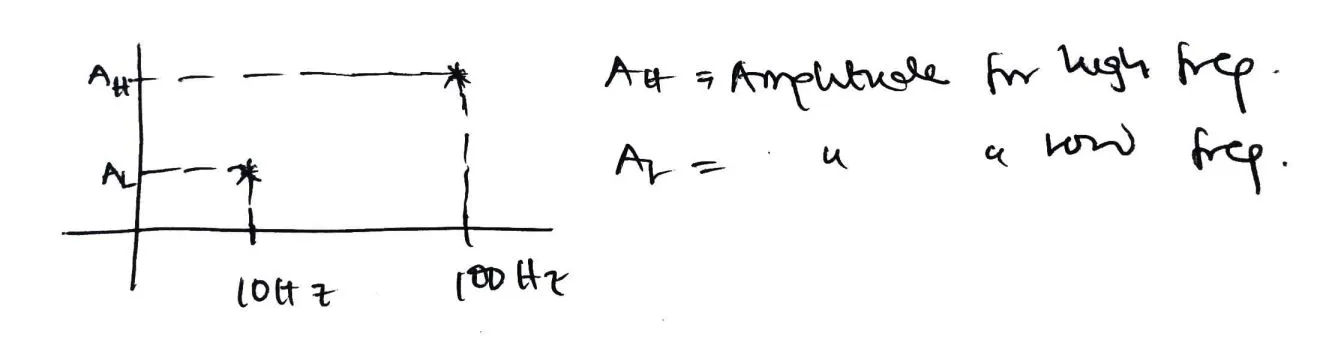 A_H
A_L
10Hz
100 Hz
A_H = Amplitude for high freq.
A_L = " " low freq.